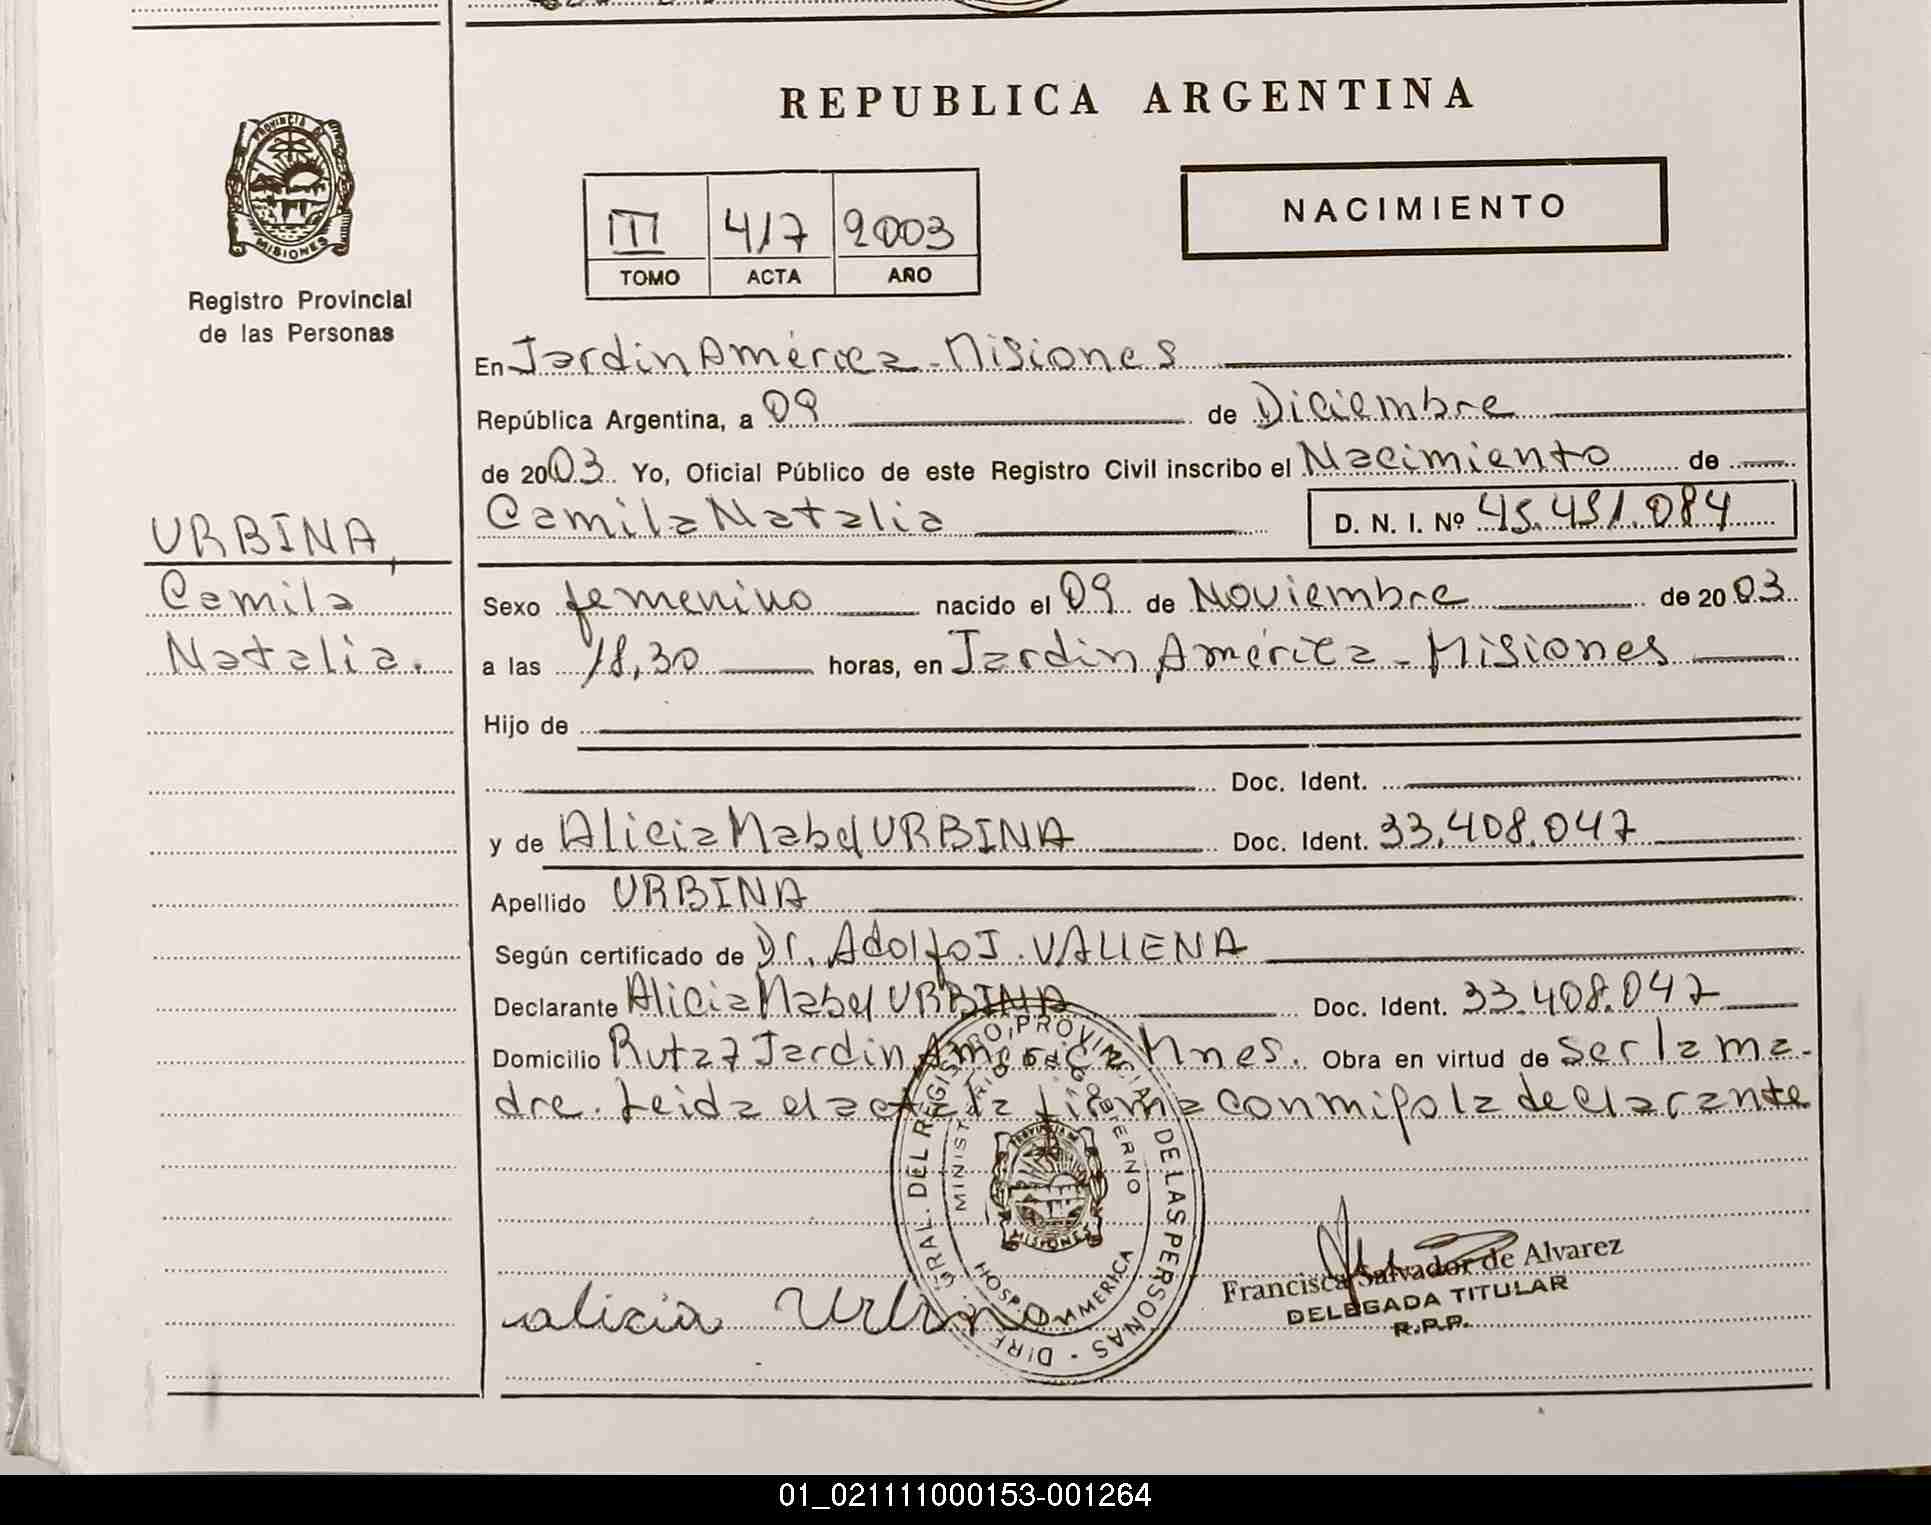 REPUBLICA ARGENTINA
PROVINCIA DE
MISIONES
Registro Provincial
de las Personas
III 417 2003
TOMO ACTA AÑO
NACIMIENTO
En Jardín América - Misiones
República Argentina, a 09 de Diciembre
de 2003. Yo, Oficial Público de este Registro Civil inscribo el Nacimiento de
Camila Natalia D. N. I. Nº 45.451.084
URBINA,
Camila
Natalia.
Sexo femenino nacido el 09 de Noviembre de 2003
a las 18,30 horas, en Jardín América - Misiones
Hijo de
Doc. Ident.
y de Alicia Mabel URBINA Doc. Ident. 33.408.047
Apellido URBINA
Según certificado de Dr. Adolfo J. VALLENA
Declarante Alicia Mabel URBINA Doc. Ident. 33.408.047
Domicilio Ruta 7 Jardín América Mnes. Obra en virtud de ser la ma-
dre. Leida el acta la firma conmigo la declarante
DIREC. GRAL. DEL REGISTRO PROVINCIAL DE LAS PERSONAS
MINISTERIO GOBIERNO
PROVINCIA DE
MISIONES
HOSP. AMERICA
alicia Urbina
Francisca Salvador de Alvarez
DELEGADA TITULAR
R.P.P.
01_021111000153-001264